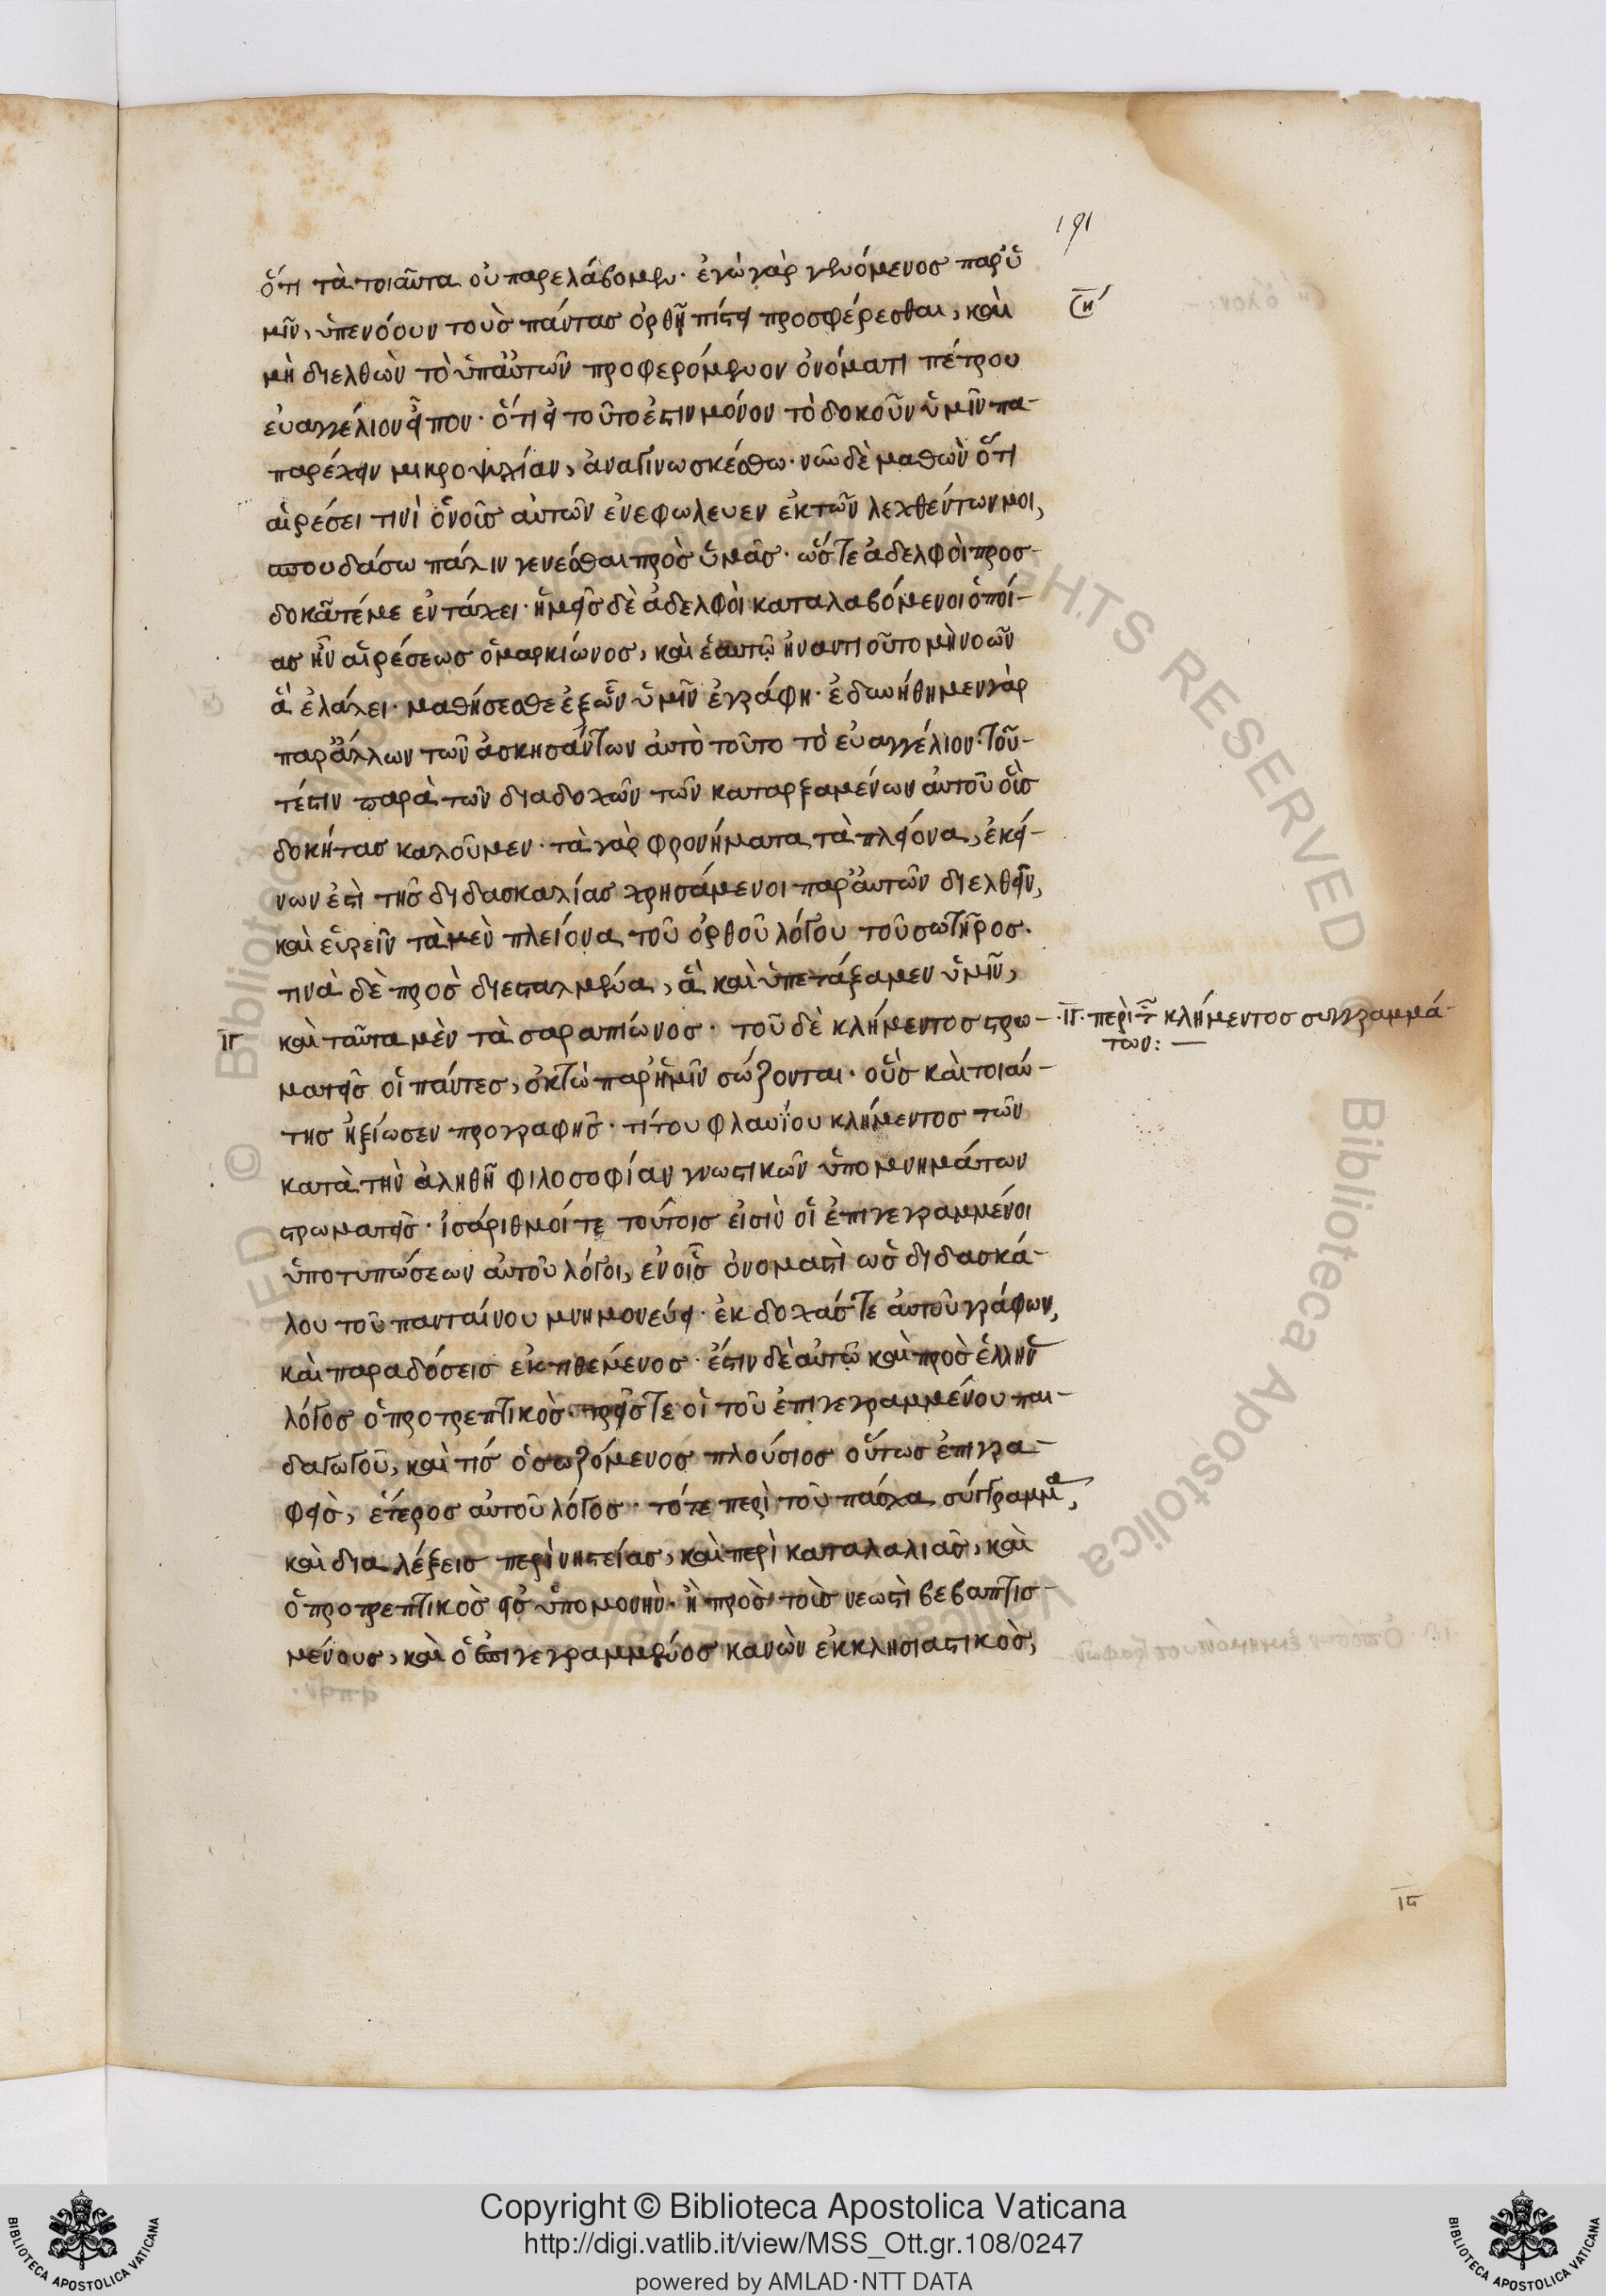 191
ὅτι τὰ τοιαῦτα οὐ παρελάβομεν· ἐγὼ γὰρ γενόμενος παρ' ὑ
μῖν, ὑπενόουν τοὺς πάντας ὀρθῇ πίστει προσφέρεσθαι, καὶ
ση'
μὴ διελθὼν τὸ ὑπ' αὐτῶν προφερόμενον ὀνόματι πέτρου
εὐαγγέλιον εἶπον· ὅτι εἰ τοῦτο ἐστιν μόνον τὸ δοκοῦν ὑμῖν πα-
παρέχειν μικροψυχίαν, ἀναγινωσκέσθω· νῦν δὲ μαθὼν ὅτι
αἱρέσει τινὶ ὁ νοῦς αὐτῶν ἐνεφώλευεν ἐκ τῶν λεχθέντων μοι,
σπουδάσω πάλιν γενέσθαι πρὸς ὑμᾶς· ὥστε ἀδελφοὶ προσ-
δοκᾶτέ με ἐν τάχει· ἡμεῖς δὲ ἀδελφοὶ καταλαβόμενοι ὁποί-
ας ἦν αἱρέσεως ὁ μαρκιώνος, καὶ ἑαυτῷ ἠναντιοῦτο μὴ νοῶν
ἃ ἐλάλει· μαθήσεσθε ἐξ ὧν ὑμῖν ἐγράφη· ἐδυνήθημεν γὰρ
παρ' ἄλλων τῶν ἀσκησάντων αὐτὸ τοῦτο τὸ εὐαγγέλιον· τοῦ-
τέστιν παρὰ τῶν διαδοχῶν τῶν καταρξαμένων αὐτοῦ οὓς
δοκήτας καλοῦμεν· τὰ γὰρ φρονήματα τὰ πλείονα, ἐκεί-
νων ἐστὶ τῆς διδασκαλίας χρησάμενοι παρ' αὐτῶν διελθεῖν,
καὶ εὑρεῖν τὰ μὲν πλείονα τοῦ ὀρθοῦ λόγου τοῦ σωτῆρος.
τινὰ δὲ προσδιεσταλμένα, ἃ καὶ ὑπετάξαμεν ὑμῖν,
ιγ καὶ ταῦτα μὲν τὰ σαραπίωνος· τοῦ δὲ κλήμεντος στρω-
·ιγ· περὶ τῶν κλήμεντος συγγραμμά-
των: —
ματεῖς οἱ πάντες, ὀκτὼ παρ' ἡμῖν σώζονται· οὓς καὶ τοιαύ-
της ἠξίωσεν προγραφῆς· τίτου φλαυΐου κλήμεντος τῶν
κατὰ τὴν ἀληθῆ φιλοσοφίαν γνωστικῶν ὑπομνημάτων
στρωματεῖς· ἰσάριθμοί τε τούτοις εἰσὶν οἱ ἐπιγεγραμμένοι
ὑποτυπώσεων αὐτοῦ λόγοι, ἐν οἷς ὀνομαστὶ ὡς διδασκά-
λου τοῦ πανταίνου μνημονεύει· ἐκδοχάς τε αὐτοῦ γράφων,
καὶ παραδόσεις ἐκτιθεμένος· ἔστιν δὲ αὐτῷ καὶ πρὸς ἕλλην
λόγος ὁ προτρεπτικὸς· τρεῖς τε οἱ τοῦ ἐπιγεγραμμένου παι-
δαγωγοῦ, καὶ τίς ὁ σωζόμενος πλούσιος οὕτως ἐπιγρα-
φεὶς, ἕτερος αὐτοῦ λόγος· τό τε περὶ τοῦ πάσχα σύγγραμμα,
καὶ διαλέξεις περὶ νηστείας, καὶ περὶ καταλαλιᾶς, καὶ
ὁ προτρεπτικὸς εἰς ὑπομονὴν· ἢ πρὸς τοὺς νεωστὶ βεβαπτισ-
μένους, καὶ ὁ ἐπιγεγραμμένος κανὼν ἐκκλησιαστικὸς,
ις
Copyright © Biblioteca Apostolica Vaticana
http://digi.vatlib.it/view/MSS_Ott.gr.108/0247
powered by AMLAD·NTT DATA
BIBLIOTECA APOSTOLICA VATICANA
BIBLIOTECA APOSTOLICA VATICANA